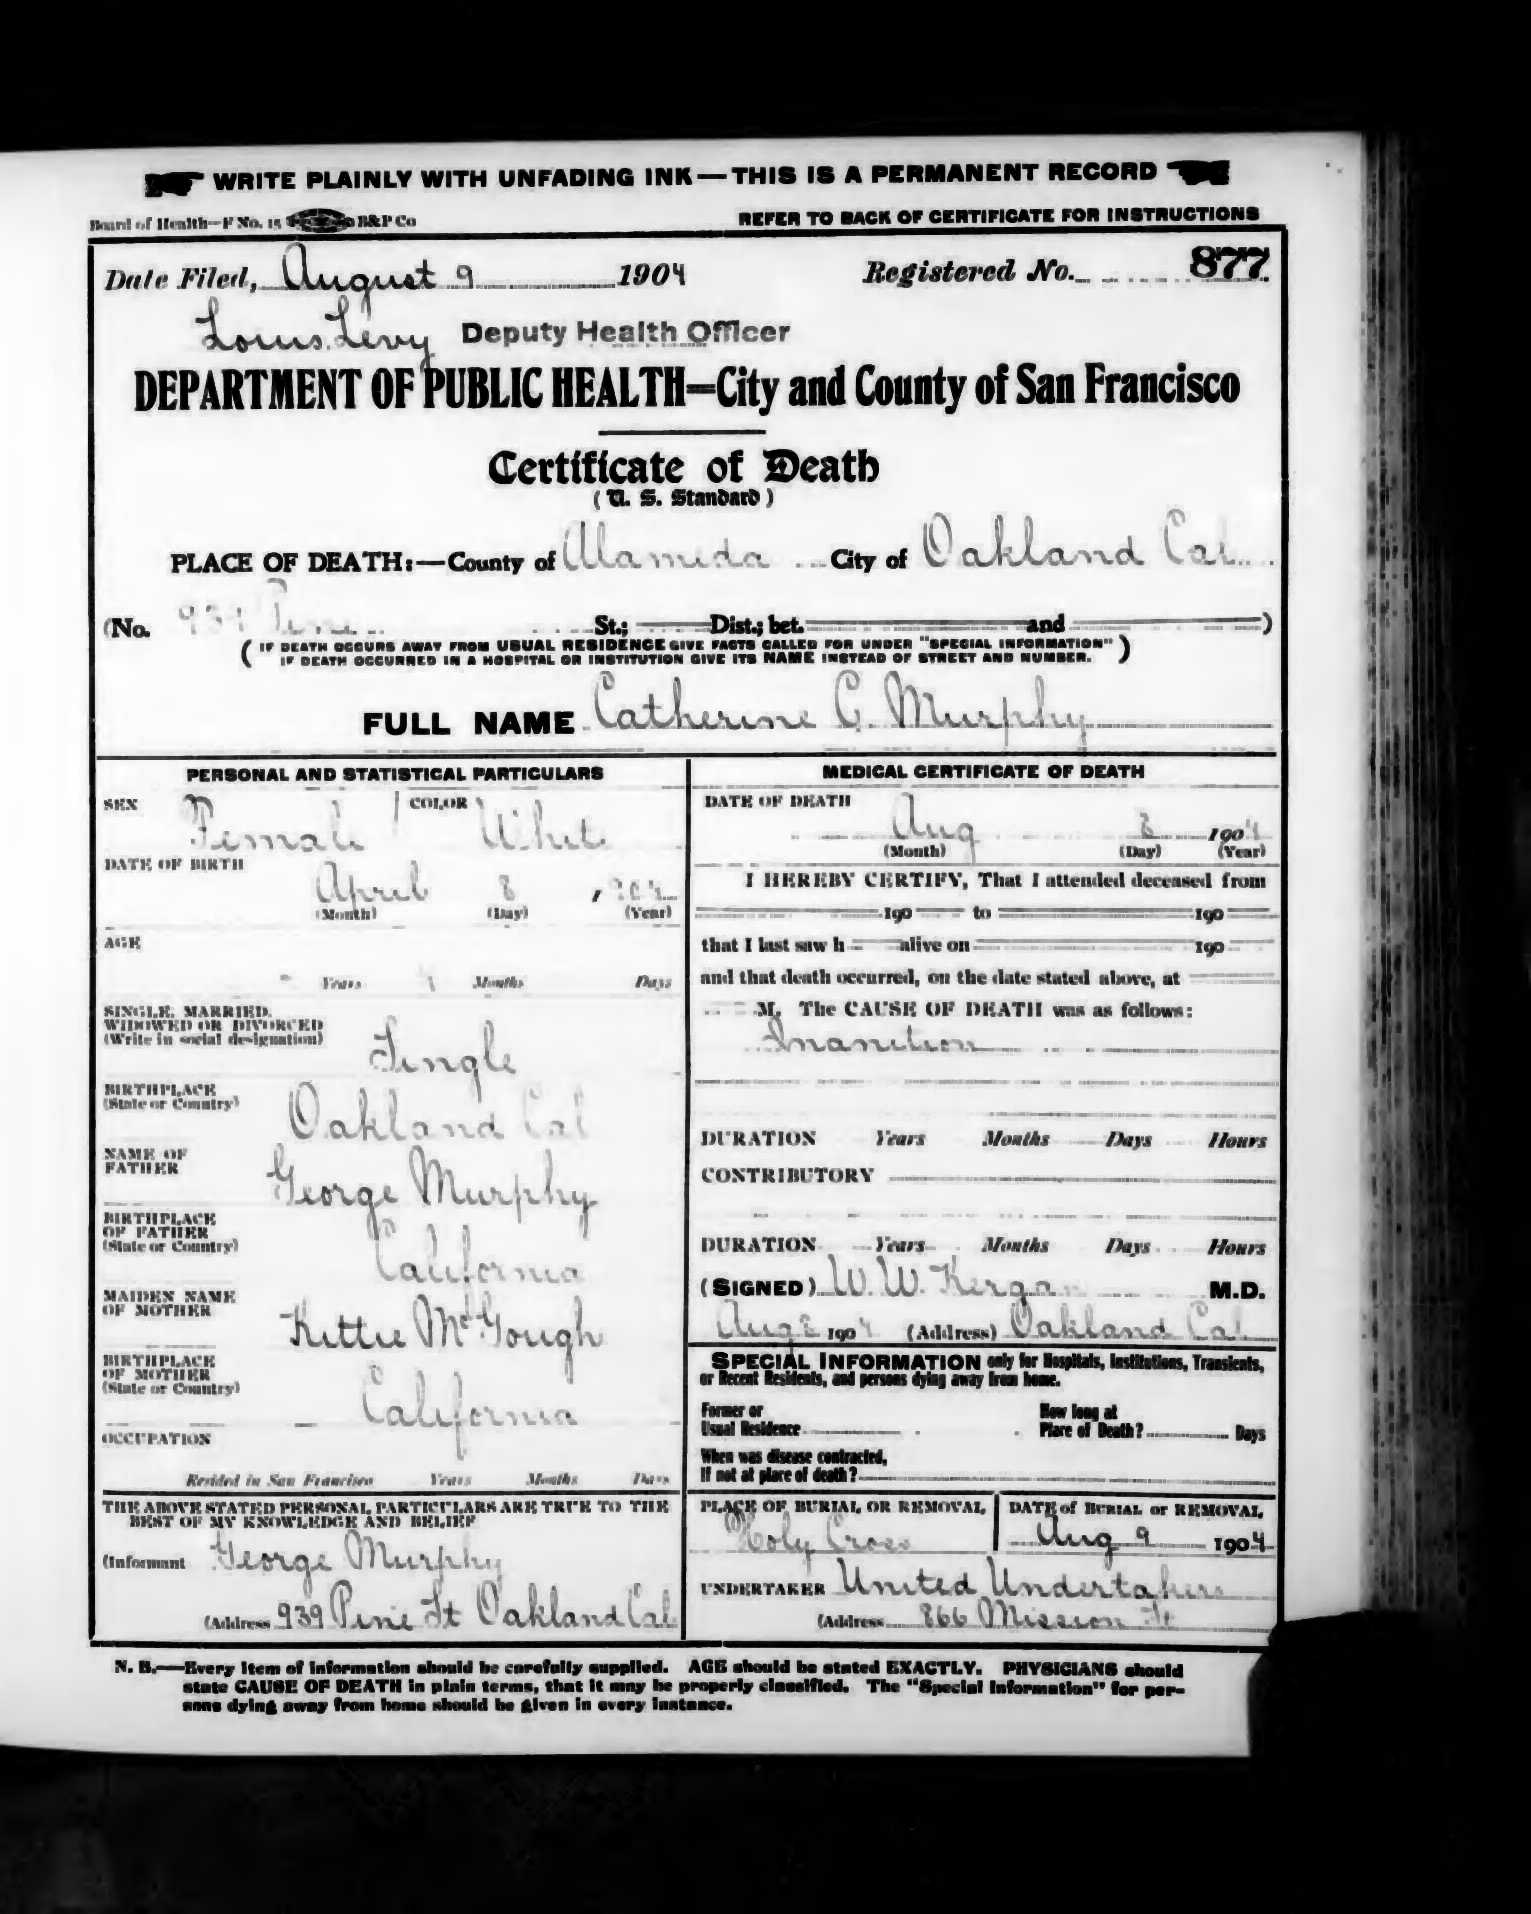 WRITE PLAINLY WITH UNFADING INK—THIS IS A PERMANENT RECORD
Board of Health—F No. 15 B&P Co REFER TO BACK OF CERTIFICATE FOR INSTRUCTIONS
Date Filed, August 9 1904 Registered No. 877
Louis Levy Deputy Health Officer
DEPARTMENT OF PUBLIC HEALTH=City and County of San Francisco
Certificate of Death
(U. S. Standard)
PLACE OF DEATH:—County of Alameda City of Oakland Cal
(No. 939 Pine St.; Dist.; bet. and )
( IF DEATH OCCURS AWAY FROM USUAL RESIDENCE GIVE FACTS CALLED FOR UNDER "SPECIAL INFORMATION" )
IF DEATH OCCURRED IN A HOSPITAL OR INSTITUTION GIVE ITS NAME INSTEAD OF STREET AND NUMBER.
FULL NAME Catherine C. Murphy
PERSONAL AND STATISTICAL PARTICULARS
SEX Female COLOR White
DATE OF BIRTH
April 8 1904
(Month) (Day) (Year)
AGE
Years 4 Months Days
SINGLE, MARRIED,
WIDOWED OR DIVORCED
(Write in social designation) Single
BIRTHPLACE
(State or Country) Oakland Cal
NAME OF
FATHER George Murphy
BIRTHPLACE
OF FATHER
(State or Country) California
MAIDEN NAME
OF MOTHER Kittie McGough
BIRTHPLACE
OF MOTHER
(State or Country) California
OCCUPATION
Resided in San Francisco Years Months Days
THE ABOVE STATED PERSONAL PARTICULARS ARE TRUE TO THE
BEST OF MY KNOWLEDGE AND BELIEF
(Informant George Murphy
(Address 939 Pine St Oakland Cal
MEDICAL CERTIFICATE OF DEATH
DATE OF DEATH
Aug 8 1904
(Month) (Day) (Year)
I HEREBY CERTIFY, That I attended deceased from
190 to 190
that I last saw h alive on 190
and that death occurred, on the date stated above, at
M. The CAUSE OF DEATH was as follows:
Inanition
DURATION Years Months Days Hours
CONTRIBUTORY
DURATION Years Months Days Hours
(SIGNED) W. W. Kergan M.D.
Aug 8 1904 (Address) Oakland Cal
SPECIAL INFORMATION only for Hospitals, Institutions, Transients,
or Recent Residents, and persons dying away from home.
Former or
Usual Residence
How long at
Place of Death? Days
When was disease contracted,
If not at place of death?
PLACE OF BURIAL OR REMOVAL
Holy Cross
DATE of BURIAL or REMOVAL
Aug 9 1904
UNDERTAKER United Undertakers
(Address 866 Mission St
N. B.—Every item of information should be carefully supplied. AGE should be stated EXACTLY. PHYSICIANS should
state CAUSE OF DEATH in plain terms, that it may be properly classified. The "Special Information" for per-
sons dying away from home should be given in every instance.